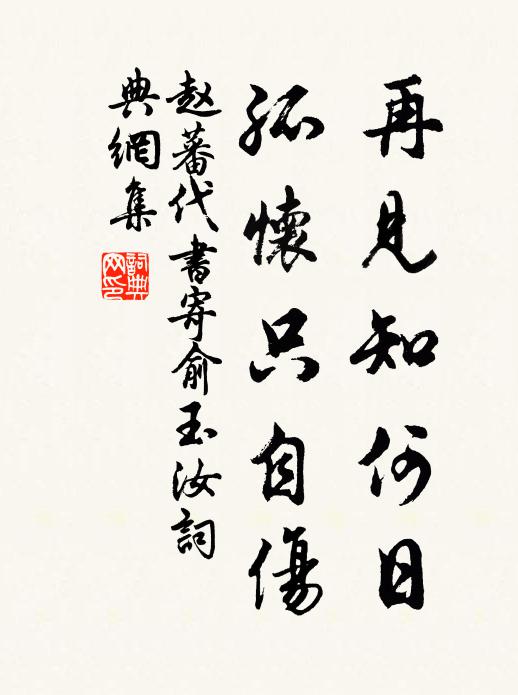 再見知何日
孤懷只自傷
赵蕃代書寄俞玉汝詞
典網集
詞典
网印